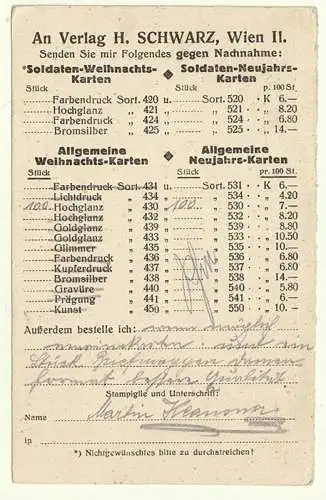 An Verlag H. SCHWARZ, Wien II.
Senden Sie mir Folgendes gegen Nachnahme:
*Soldaten-Weihnachts-Karten ◆ Soldaten-Neujahrs-Karten
Stück Stück p. 100 St.
Farbendruck Sort. 420 u. Sort. 520 K 6.—
Hochglanz „ 421 „ „ 521 „ 8.20
Farbendruck „ 424 „ „ 524 „ 6.80
Bromsilber „ 425 „ „ 525 „ 14.—
Allgemeine Weihnachts-Karten ◆ Allgemeine Neujahrs-Karten
Stück Stück p. 100 St.
Farbendruck Sort. 431 u. Sort. 531 K 6.—
Lichtdruck „ 434 „ „ 534 „ 4.20
100 Hochglanz „ 430 „ 100 „ 530 „ 7.—
Hochglanz „ 432 „ „ 532 „ 8.20
Goldglanz „ 439 „ „ 539 „ 8.20
Goldglanz „ 433 „ „ 533 „ 10.50
Glimmer „ 435 „ „ 535 „ 8.20
Farbendruck „ 436 „ „ 536 „ 6.80
Kupferdruck „ 437 „ „ 537 „ 6.80
Bromsilber „ 438 „ „ 538 „ 14.—
Gravüre „ 440 „ „ 540 „ 5.80
Prägung „ 441 „ „ 541 „ 8.—
Kunst „ 450 „ „ 550 „ 10.—
Außerdem bestelle ich: wenn möglich
Stück Briefmappen Damen
format bessere Qualität
Stampiglie und Unterschrift:
Name Martin
in
*) Nichtgewünschtes bitte zu durchstreichen!